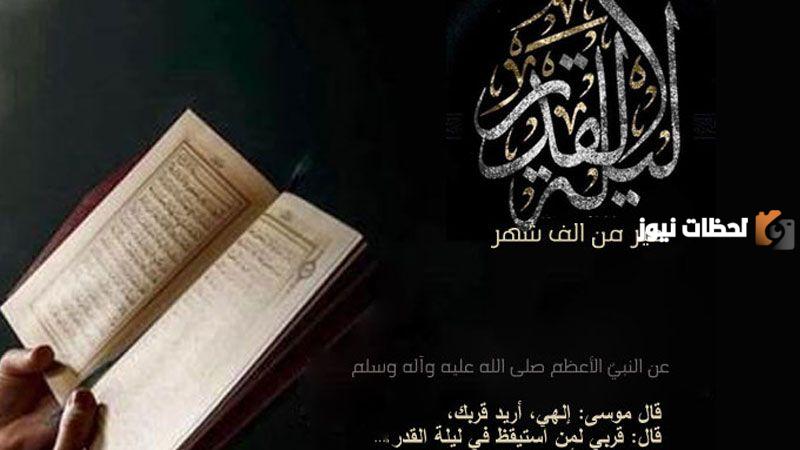 ليلة القدر
خير من الف شهر
لحظات نيوز
عن النبيّ الأعظم صلى الله عليه وآله وسلم
قال موسى: إلهي، أريد قربك،
قال: قربي لمن أستيقظ في ليلة القدر،...